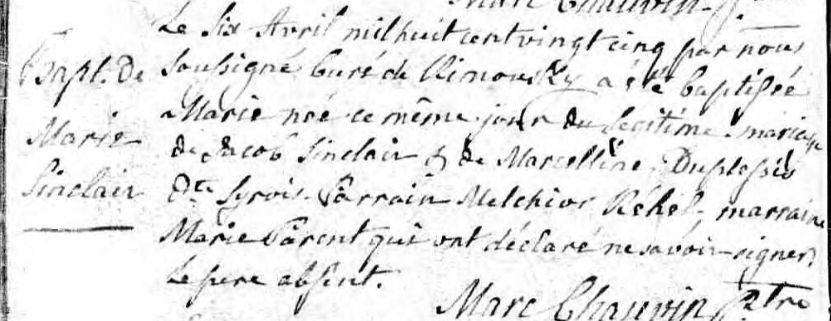 Marc Chauvin Ptre
Le Six Avril mil huit cent vingt cinq par nous
Bapt. de
soussigné Curé de Rimousky a été baptisée
Marie née ce même jour du légitime mariage
Marie
de Jacob Sinclair & de Marcelline Duplessis
Sinclair
dte Syrois. Parrain Melchior Réhel, marraine
Marie Parent qui ont déclaré ne savoir signer.
Le pere absent.
Marc Chauvin Ptre